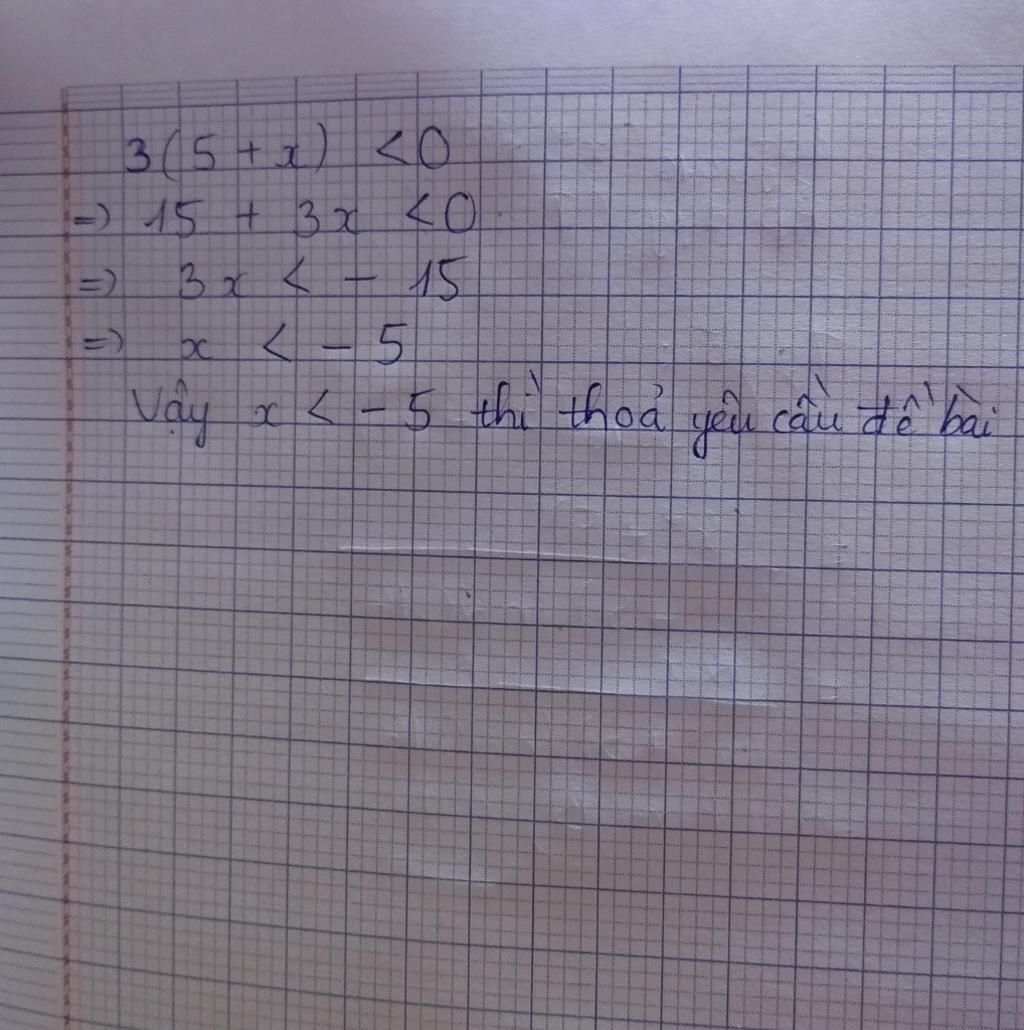 3(5 + x) < 0
=) 15 + 3x < 0
=) 3x < - 15
=) x < - 5
Vậy x < - 5 thì thoả yêu cầu đề bài